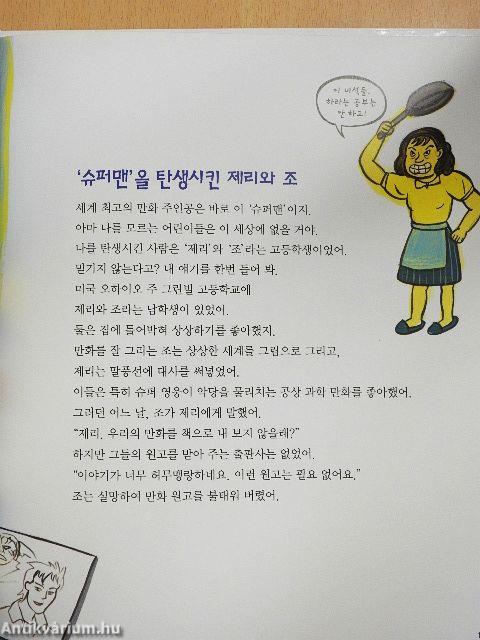 이 녀석들,
하라는 공부는
안 하고!
'슈퍼맨'을 탄생시킨 제리와 조
세계 최고의 만화 주인공은 바로 이 '슈퍼맨'이지.
아마 나를 모르는 어린이들은 이 세상에 없을 거야.
나를 탄생시킨 사람은 '제리'와 '조'라는 고등학생이었어.
믿기지 않는다고? 내 얘기를 한번 들어 봐.
미국 오하이오 주 그린빌 고등학교에
제리와 조라는 남학생이 있었어.
둘은 집에 틀어박혀 상상하기를 좋아했지.
만화를 잘 그리는 조는 상상한 세계를 그림으로 그리고,
제리는 말풍선에 대사를 써넣었어.
이들은 특히 슈퍼 영웅이 악당을 물리치는 공상 과학 만화를 좋아했어.
그러던 어느 날, 조가 제리에게 말했어.
"제리, 우리의 만화를 책으로 내 보지 않을래?"
하지만 그들의 원고를 받아 주는 출판사는 없었어.
"이야기가 너무 허무맹랑하네요. 이런 원고는 필요 없어요."
조는 실망하여 만화 원고를 불태워 버렸어.
Antikvárium.hu